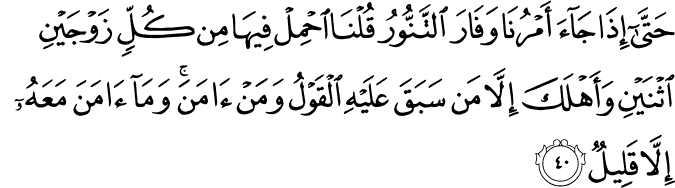 حَتَّىٰٓ إِذَا جَآءَ أَمْرُنَا وَفَارَ ٱلتَّنُّورُ قُلْنَا ٱحْمِلْ فِيهَا مِن كُلٍّ زَوْجَيْنِ
ٱثْنَيْنِ وَأَهْلَكَ إِلَّا مَن سَبَقَ عَلَيْهِ ٱلْقَوْلُ وَمَنْ ءَامَنَ ۚ وَمَآ ءَامَنَ مَعَهُۥٓ
إِلَّا قَلِيلٌ ٤٠